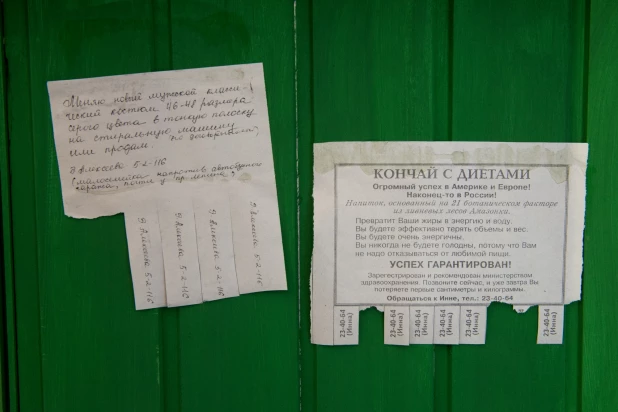 Меняю новый мужской класси-
ческий костюм 46-48 размера
серого цвета в тонкую полоску
на стиральную машину
или продам.
5-2-116
(малосемейка напротив автобусного
5-2-116
5-2-116
5-2-116
5-2-116
КОНЧАЙ С ДИЕТАМИ
Огромный успех в Америке и Европе!
Наконец-то в России!
Напиток, основанный на 21 ботаническом факторе
из ливневых лесов Амазонки.
Превратит Ваши жиры в энергию и воду.
Вы будете эффективно терять объемы и вес.
Вы будете очень энергичны.
Вы никогда не будете голодны, потому что Вам
не надо отказываться от любимой пищи.
УСПЕХ ГАРАНТИРОВАН!
Зарегистрирован и рекомендован министерством
здравоохранения. Позвоните сейчас, и уже завтра Вы
потеряете первые сантиметры и килограммы.
Обращаться к Инне, тел.: 23-40-64
23-40-64
(Инна)
23-40-64
(Инна)
23-40-64
(Инна)
23-40-64
(Инна)
23-40-64
(Инна)
23-40-64
(Инна)